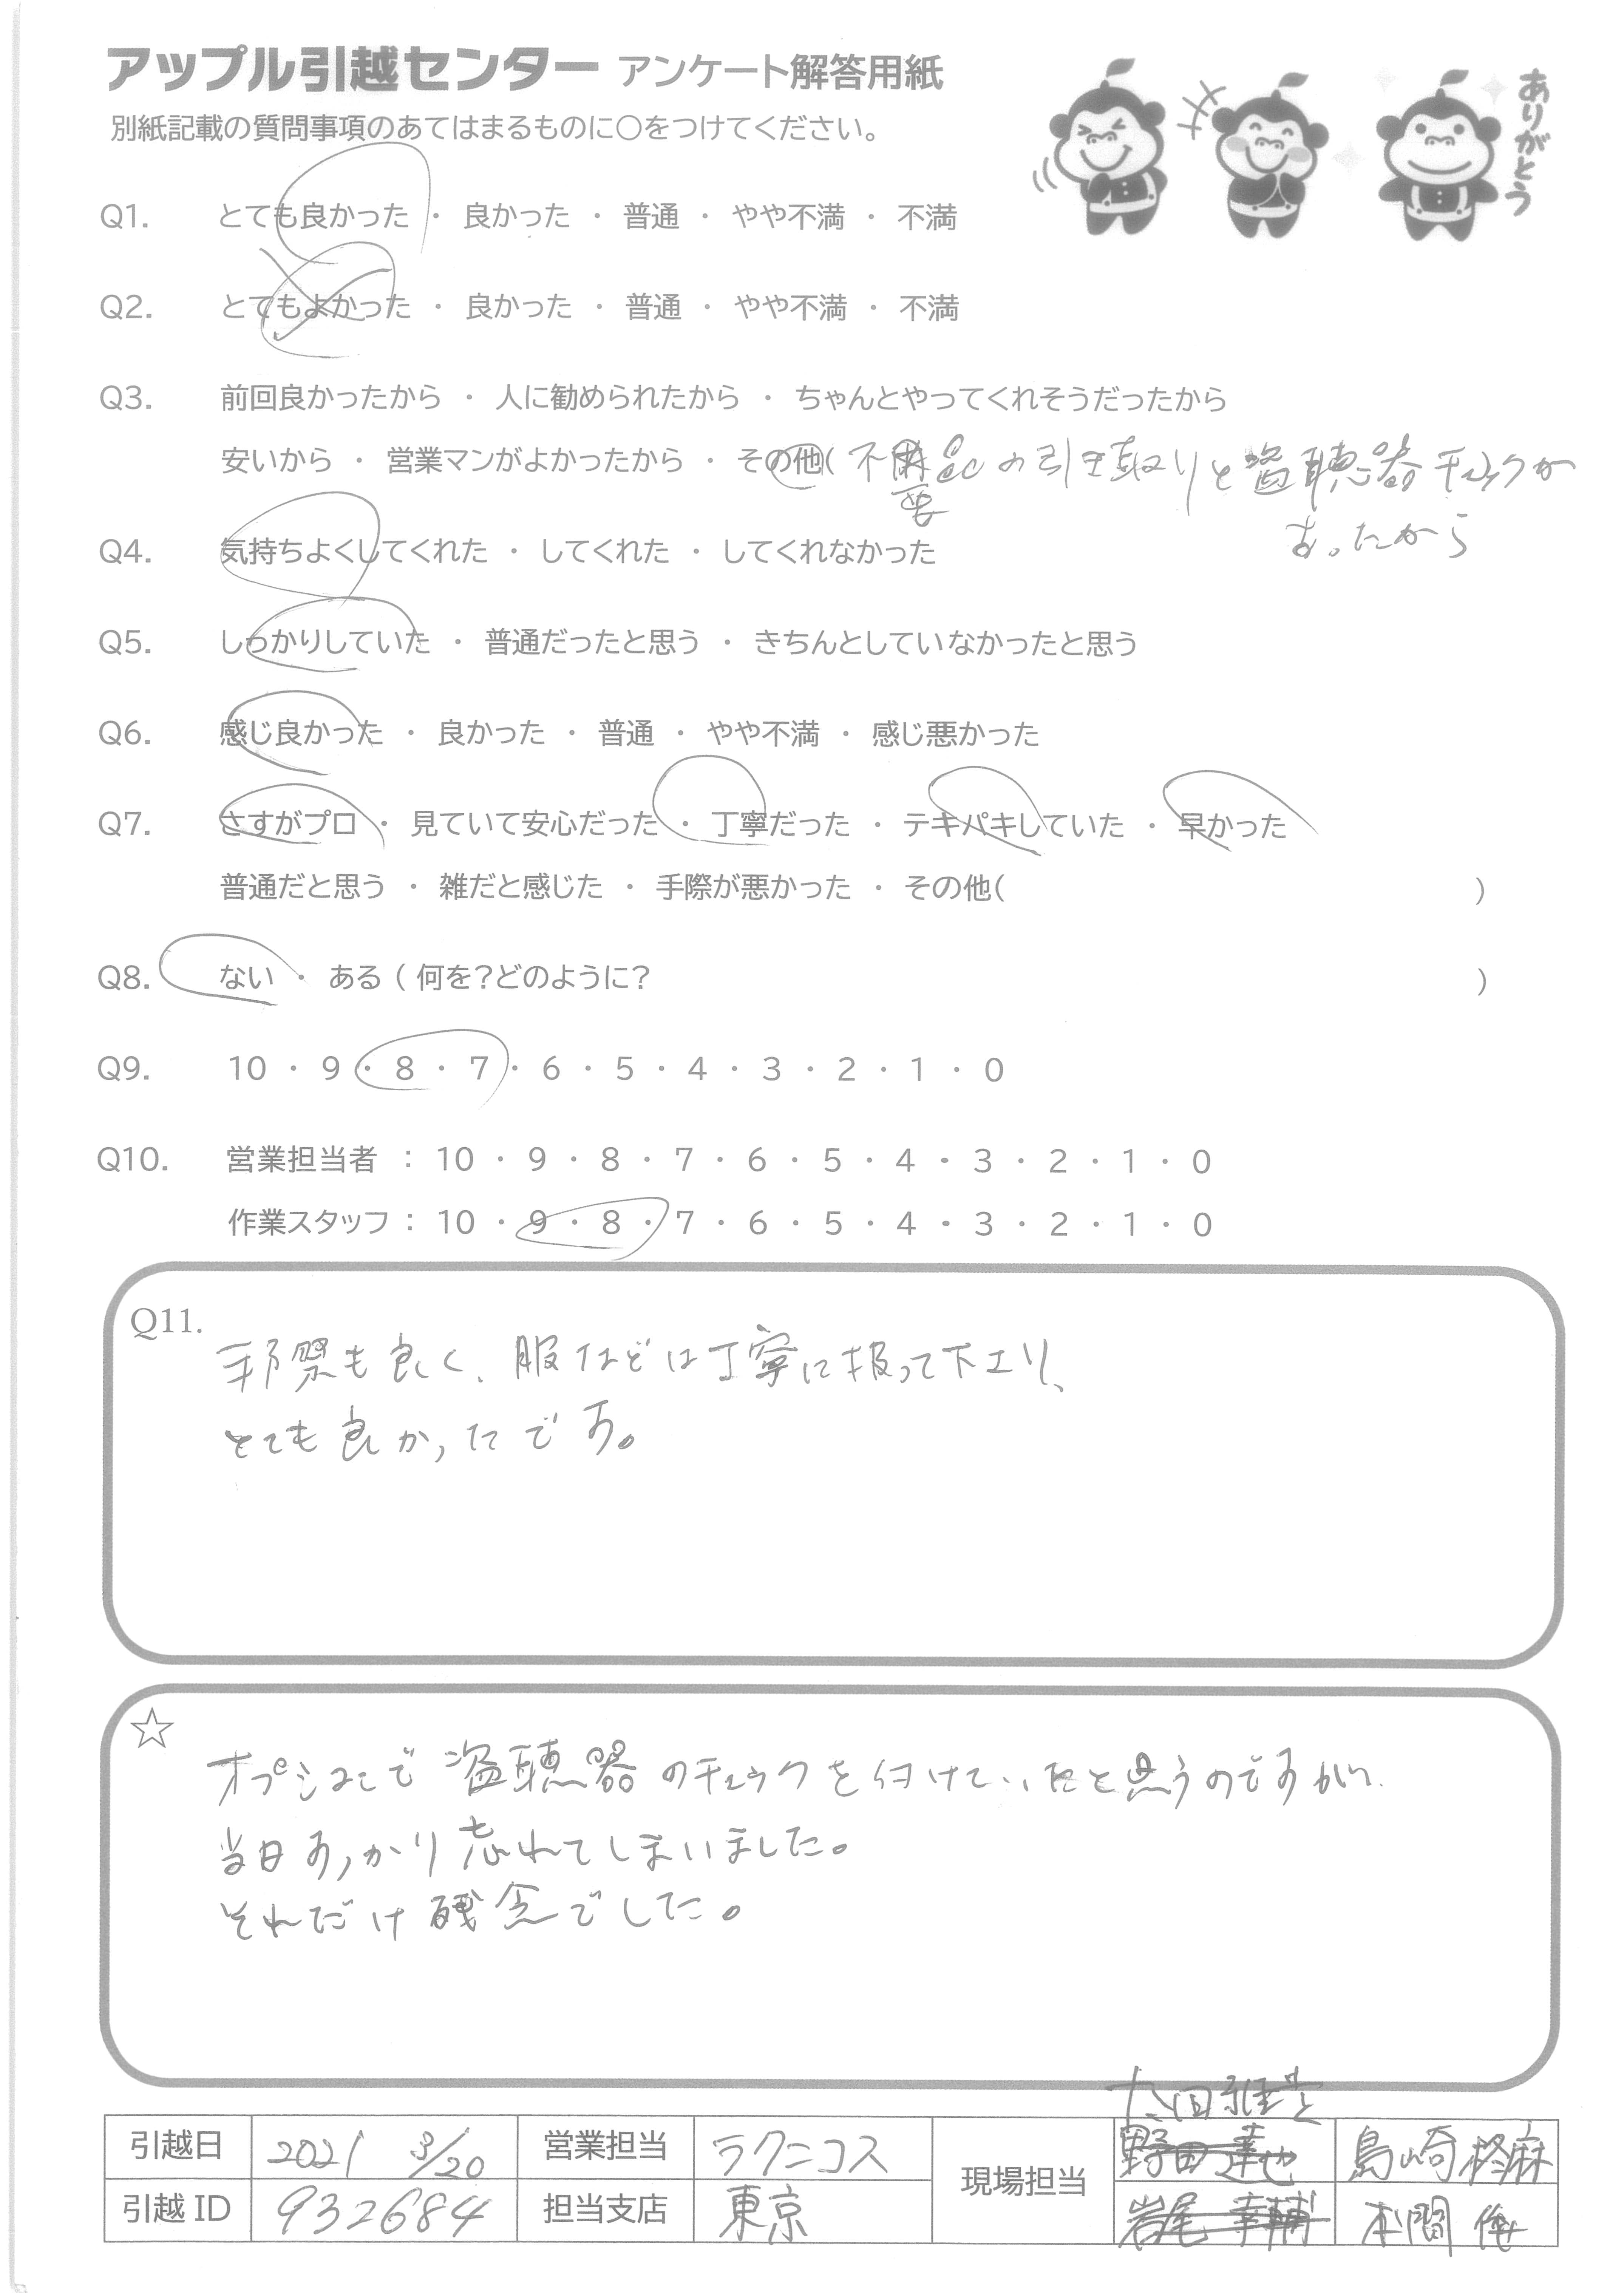 アップル引越センター アンケート解答用紙
ありがとう
別紙記載の質問事項のあてはまるものに○をつけてください。
Q1. とても良かった ・ 良かった ・ 普通 ・ やや不満 ・ 不満
Q2. とてもよかった ・ 良かった ・ 普通 ・ やや不満 ・ 不満
Q3. 前回良かったから ・ 人に勧められたから ・ ちゃんとやってくれそうだったから
安いから ・ 営業マンがよかったから ・ その他( 不要品の引き取りと盗聴器チェックが
あったから
Q4. 気持ちよくしてくれた ・ してくれた ・ してくれなかった
Q5. しっかりしていた ・ 普通だったと思う ・ きちんとしていなかったと思う
Q6. 感じ良かった ・ 良かった ・ 普通 ・ やや不満 ・ 感じ悪かった
Q7. さすがプロ ・ 見ていて安心だった ・ 丁寧だった ・ テキパキしていた ・ 早かった
普通だと思う ・ 雑だと感じた ・ 手際が悪かった ・ その他( )
Q8. ない ・ ある ( 何を?どのように? )
Q9. 10 ・ 9 ・ 8 ・ 7 ・ 6 ・ 5 ・ 4 ・ 3 ・ 2 ・ 1 ・ 0
Q10. 営業担当者 : 10 ・ 9 ・ 8 ・ 7 ・ 6 ・ 5 ・ 4 ・ 3 ・ 2 ・ 1 ・ 0
作業スタッフ : 10 ・ 9 ・ 8 ・ 7 ・ 6 ・ 5 ・ 4 ・ 3 ・ 2 ・ 1 ・ 0
Q11.
手際も良く、服などは丁寧に扱って下さり、
とても良かったです。
☆
オプションで盗聴器のチェックを付けていたと思うのですが、
当日すっかり忘れてしまいました。
それだけ残念でした。
引越日 2021 3/20 営業担当 ラクニコス 現場担当 野田 達也 島崎 柊麻
引越ID 932684 担当支店 東京 岩尾 幸輔 本間